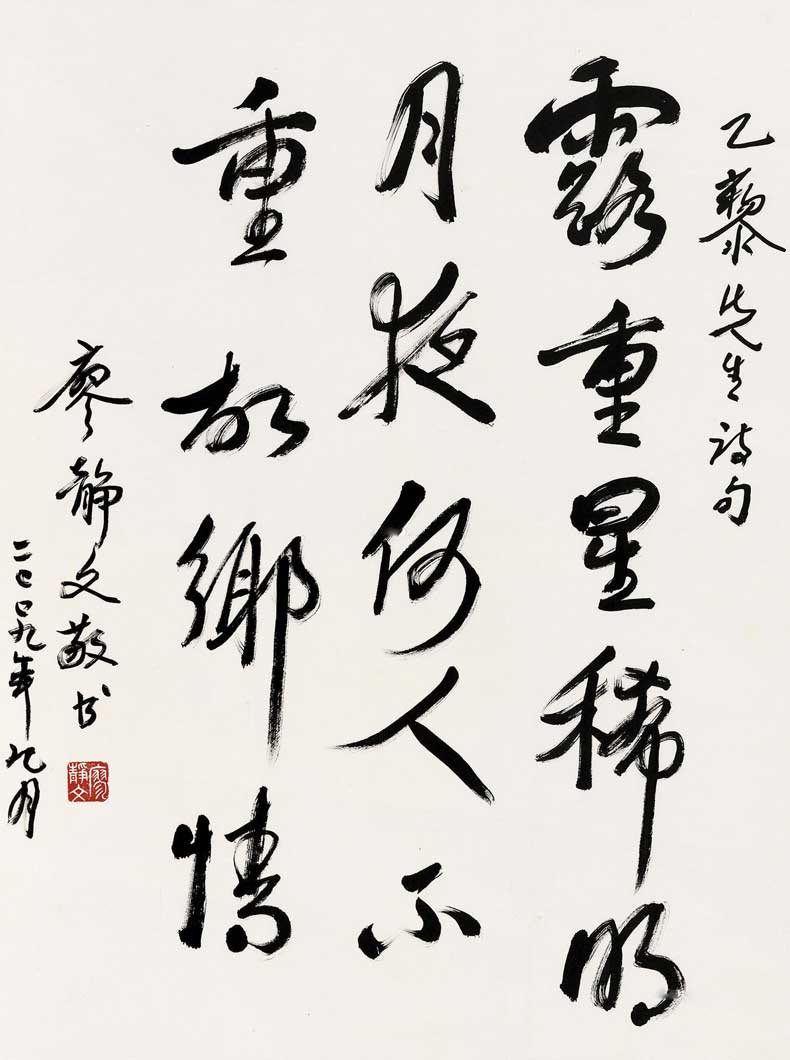 乙藜先生诗句
露重星稀明
月夜何人不
重故鄉情
廖靜文敬书
二〇〇九年九月
廖靜文